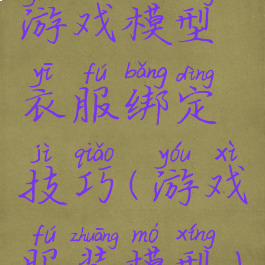 游戏模型
yī fú bǎng dìng
衣服绑定
jì qiǎo yóu xì
技巧(游戏
fú zhuāng mó xíng
服装模型)